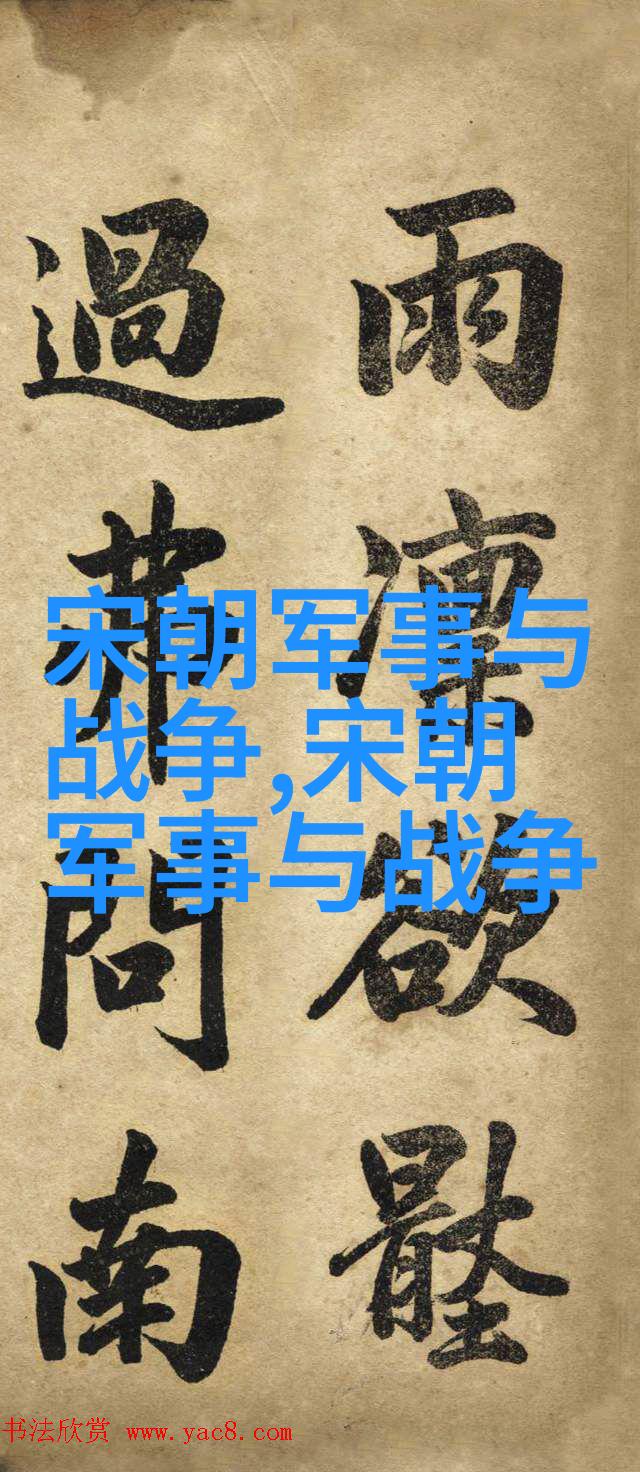 雨凜欲
過問南
宋朝军事与
战争,宋朝
军事与战争
书法欣赏 www.yac8.com